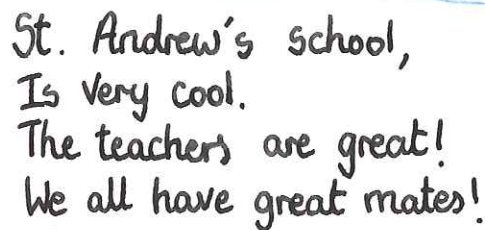 St. Andrew's school,
Is Very cool.
The teachers are great!
We all have great mates!